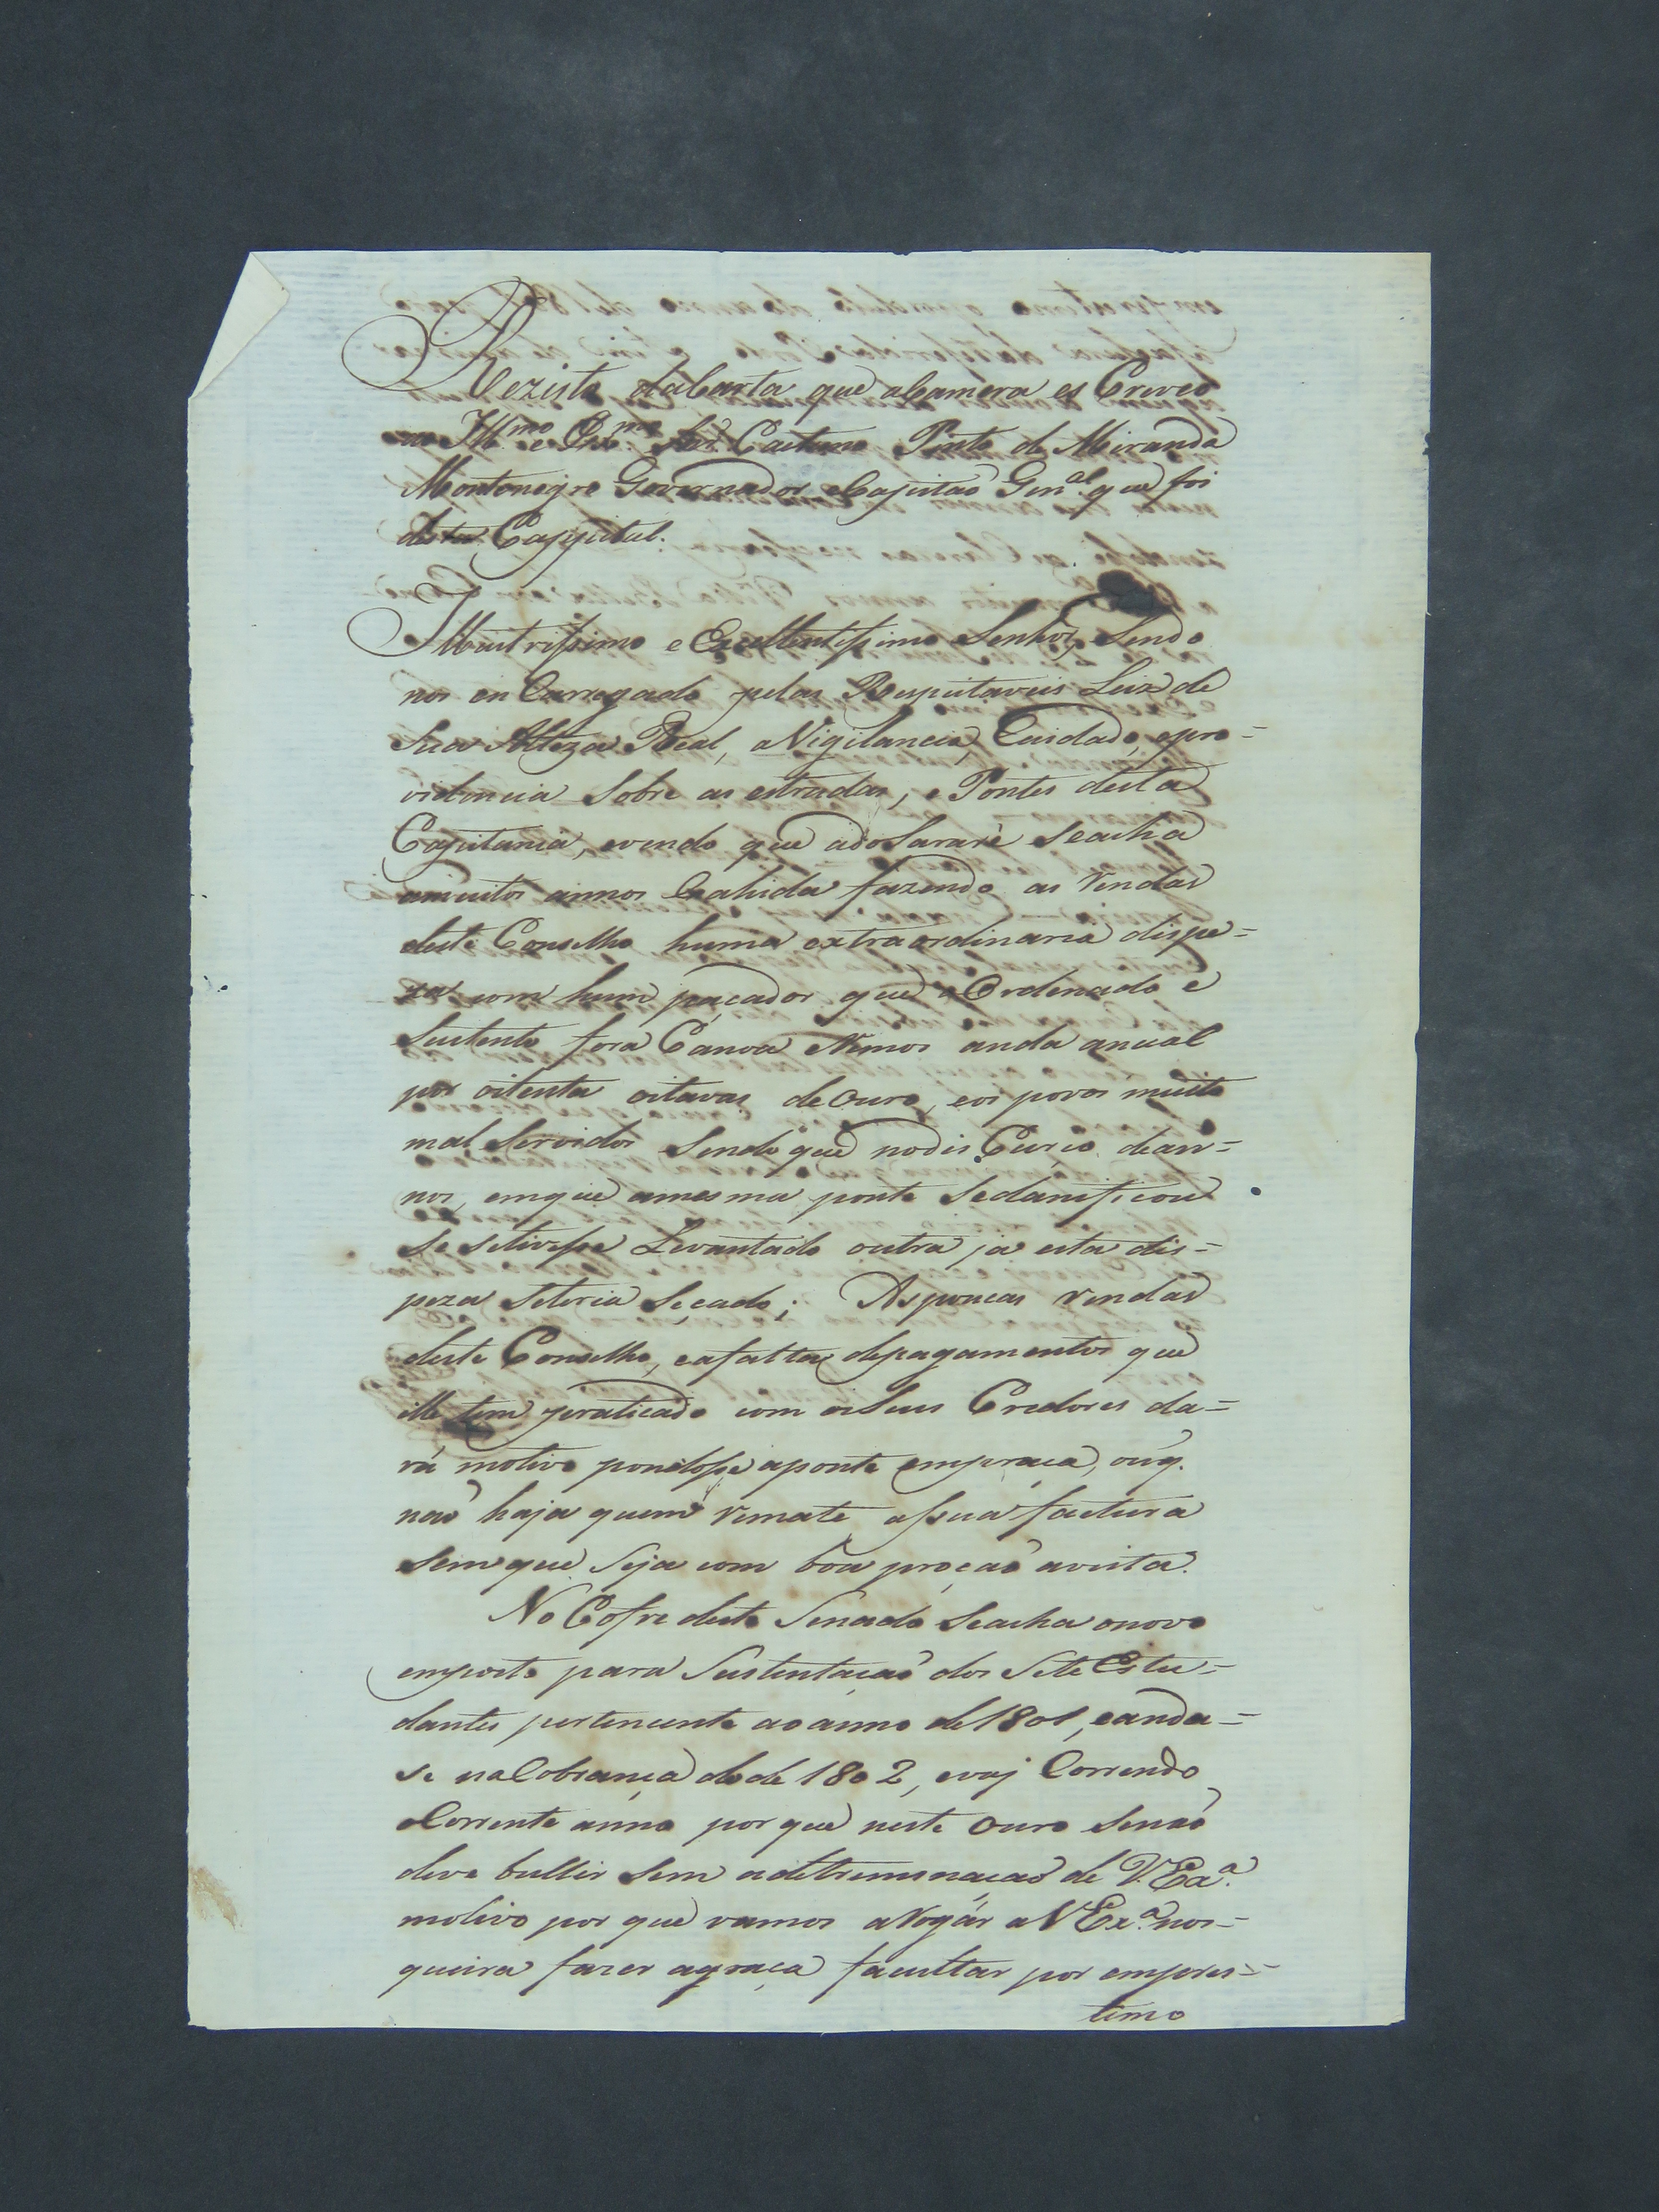 Rezisto da Carta que a Camera es Creveo
ao Ill.mo e Ex.mo Snr. Caetano Pinto de Miranda
Montenegro Governador e Capitaõ Gen.al que foi
desta Cappital.
Illustrissimo e Excellentissimo Senhor, Sendo
nos en Carregado pelas Respeitaveis Leis de
Sua Alteza Real, a Vigilancia, Cuidado, e pro=
videncia Sobre as estradas, e Pontes desta
Capitania, evendo que ado Sararé Seacha
amuitos annos Cahida fazendo as Rendas
deste Conselho huma extraordinaria dispe=
za com hum paçador que o Ordenado e
Sustento fora Canoa e Remos anda anual
por oitenta oitavas de Ouro, eos povos muito
mal Servidos Sendo que nodis Curço dean=
nos, emque amesma ponte Sedanificou
Se Setivesse Levantado outra ja esta dis=
peza Seteria Seçado; As poucas rendas
deste Conselho, eafalta depagamentos que
elle tem praticado com os Seus Credores da=
rá motivo pondosse aponte empraca, oú q.
naõ haja quem remate assua factura
Sem que Seja com boa proçaõ avista.
No Cofre deste Senado Seacha onovo
emposto para Sustentaçaõ dos Sete Estu=
dantes pertencente ao anno de 1801, eanda=
se na Cobrança dode 1802, evaj Correndo
oCorrente anno por que neste Ouro Senaõ
deve bullir Sem adetreminaçaõ de V. Ex.a
motivo por que vamos aRogár a V Ex.a nos=
queira fazer agraça facultar por empres=
timo